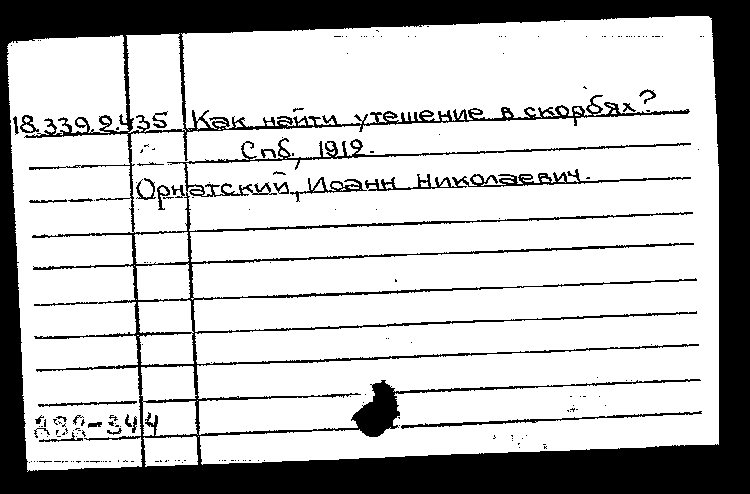 18.339.2.435 Как найти утешение в скорбях?
Спб, 1912.
Орнатский, Иоанн Николаевич.
-344